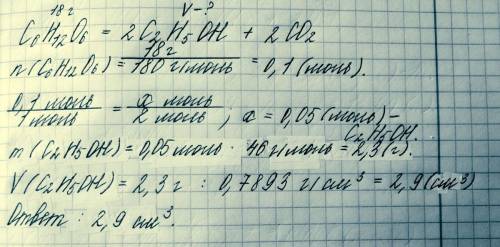 18 г V-?
C6H12O6 = 2C2H5OH + 2CO2
n(C6H12O6) = 18г / 180 г/моль = 0,1 (моль).
0,1 моль / 1 моль = x моль / 2 моль ; x = 0,05 (моль) - C2H5OH
m(C2H5OH) = 0,05 моль · 46 г/моль = 2,3 (г).
V(C2H5OH) = 2,3 г : 0,7893 г/см³ = 2,9 (см³)
Ответ : 2,9 см³.